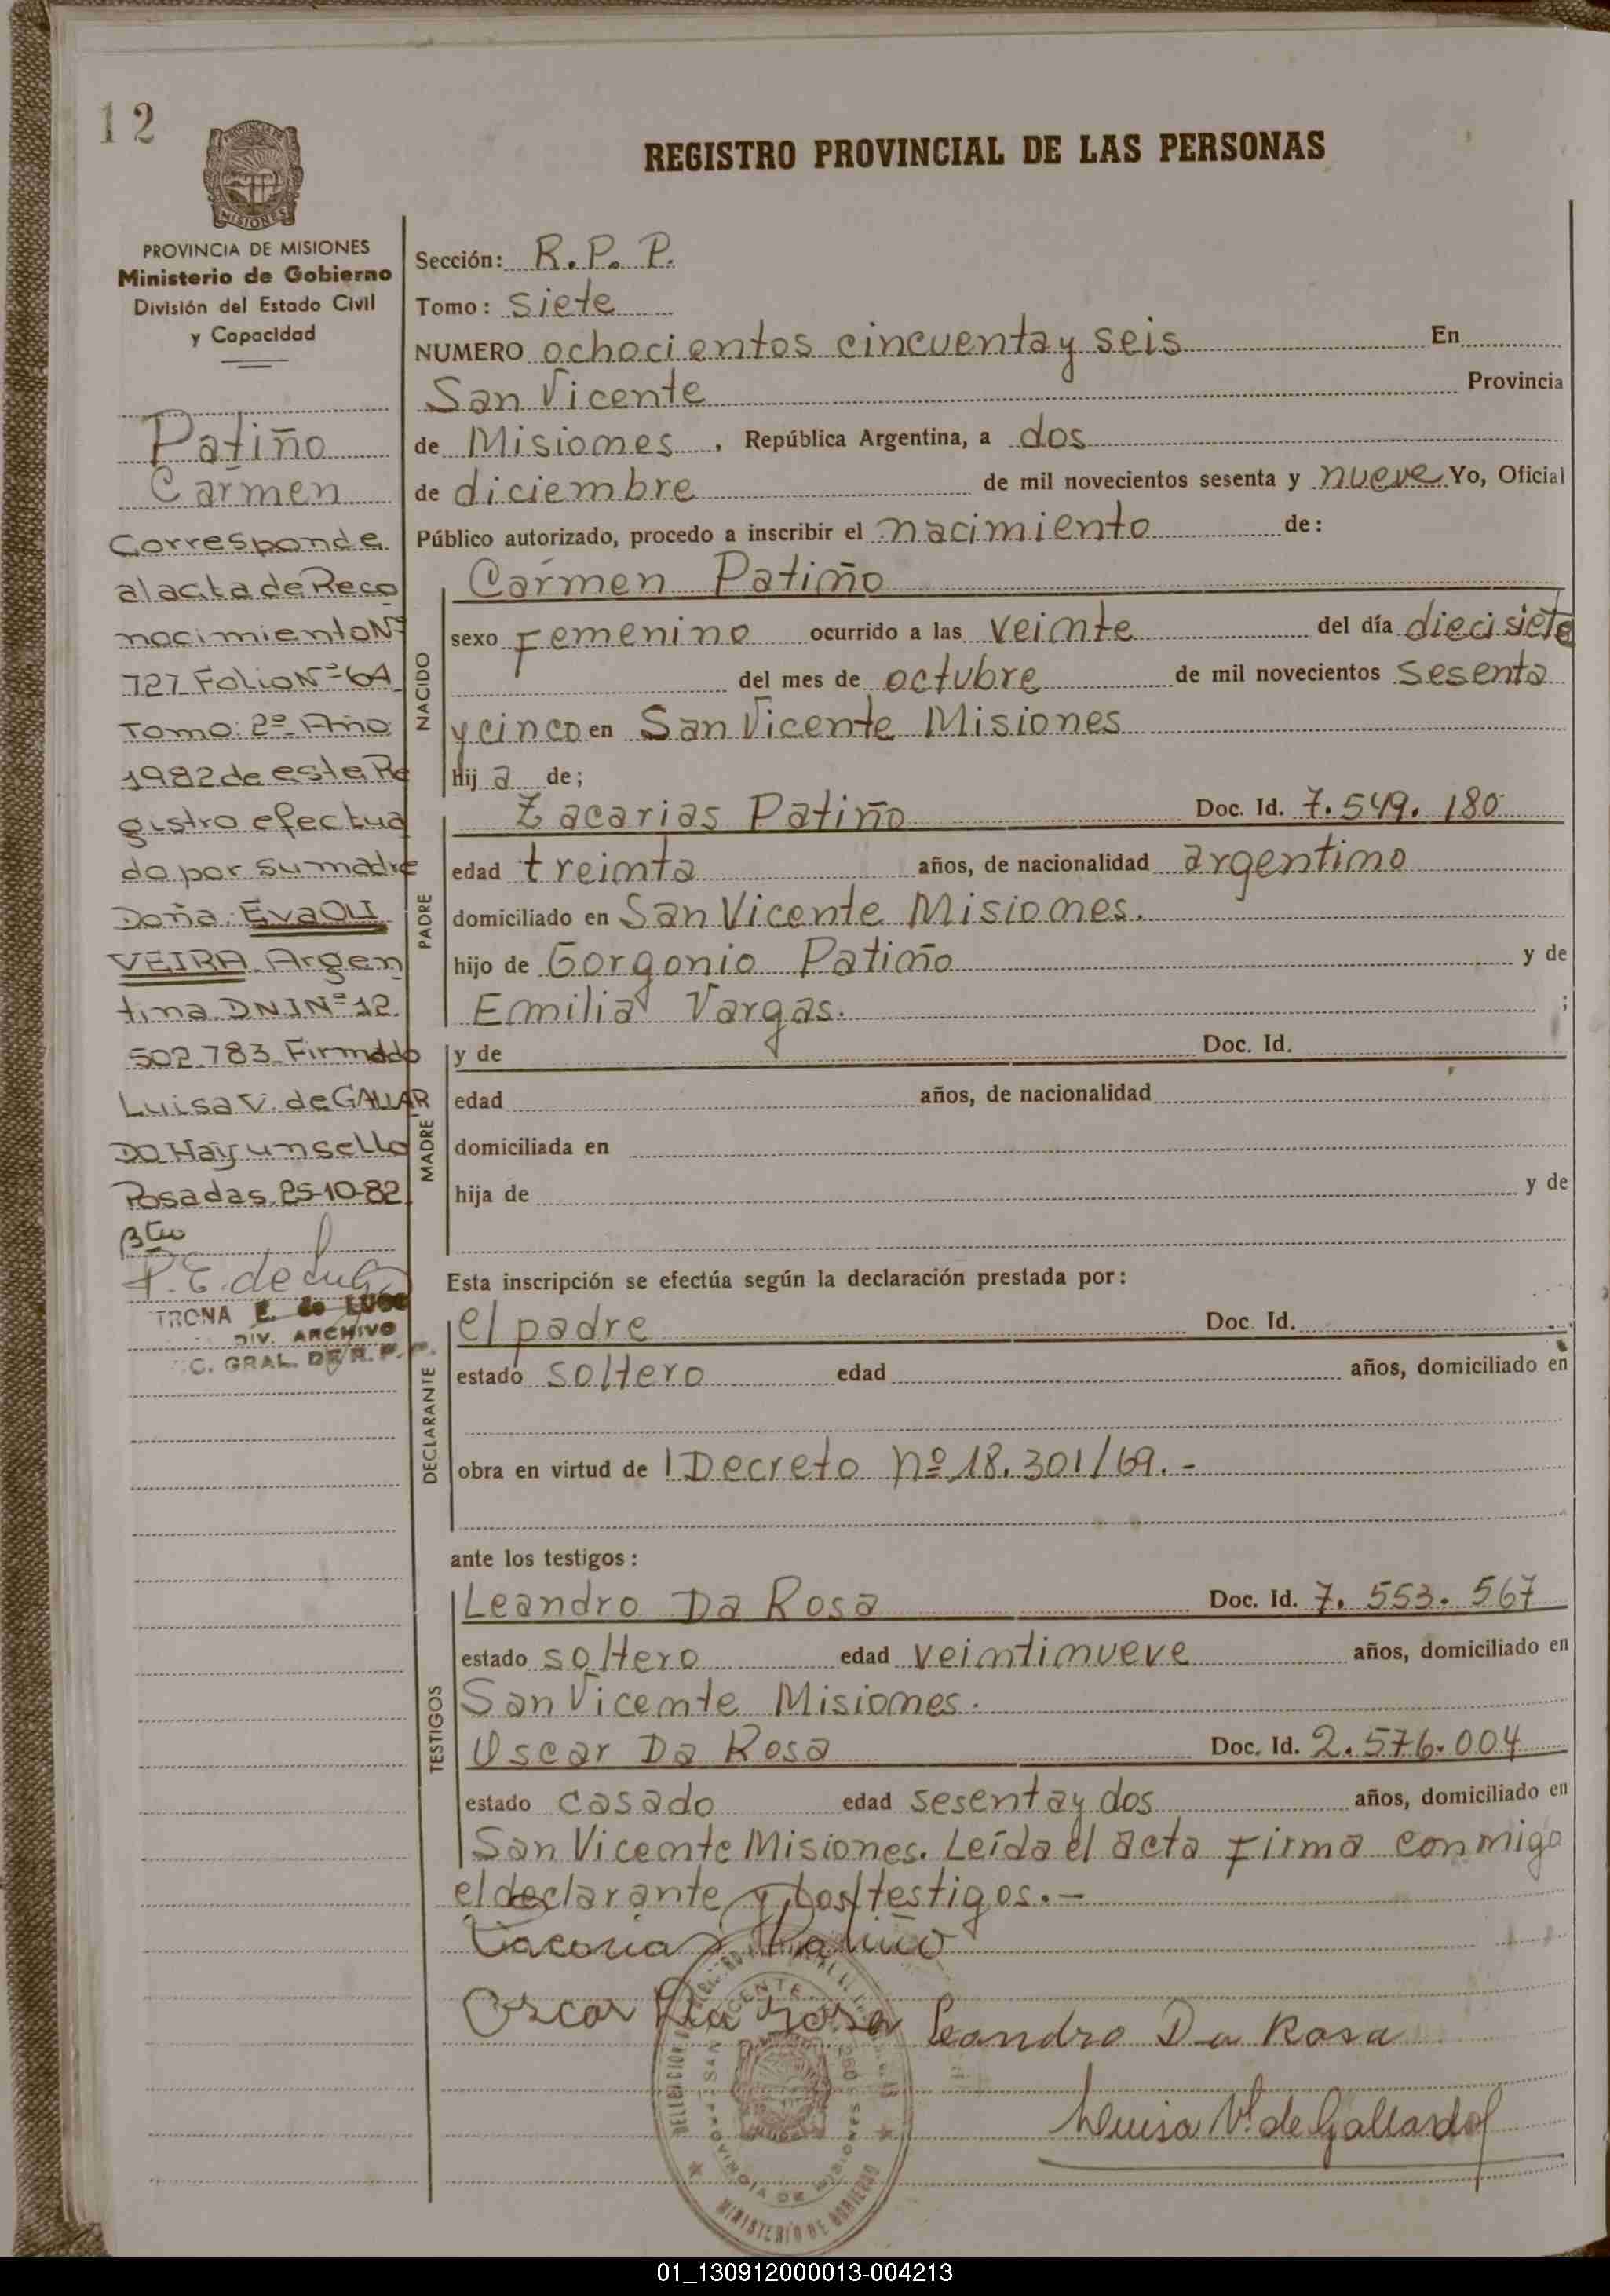 12
REGISTRO PROVINCIAL DE LAS PERSONAS
PROVINCIA DE
MISIONES
PROVINCIA DE MISIONES
Ministerio de Gobierno
División del Estado Civil
y Capacidad
Patiño
Carmen
Corresponde
al acta de Reco
nocimiento Nº
727 Folio Nº 64
Tomo: 2º Año
1982 de este Re
gistro efectua
do por su madre
Doña: Eva OLI
VEIRA Argen
tina DNI Nº 12.
502.783 Firmado
Luisa V. de GALLAR
DO Hay un sello
Posadas, 25-10-82
P. E. de
TRONA E. de LUGO
DIV. ARCHIVO
C. GRAL. DE R. P. P.
Sección: R. P. P.
Tomo: siete
NUMERO ochocientos cincuenta y seis En
San Vicente Provincia
de Misiones, República Argentina, a dos
de diciembre de mil novecientos sesenta y nueve Yo, Oficial
Público autorizado, procedo a inscribir el nacimiento de:
NACIDO
Carmen Patiño
sexo Femenino ocurrido a las veinte del día diecisiete
del mes de octubre de mil novecientos sesenta
y cinco en San Vicente Misiones
hij a de;
PADRE
Zacarias Patiño Doc. Id. 7.549.180
edad treinta años, de nacionalidad argentino
domiciliado en San Vicente Misiones.
hijo de Gorgonio Patiño y de
Emilia Vargas. ;
MADRE
y de Doc. Id.
edad años, de nacionalidad
domiciliada en
hija de y de
Esta inscripción se efectúa según la declaración prestada por:
DECLARANTE
el padre Doc. Id.
estado soltero edad años, domiciliado en
obra en virtud de l Decreto nº 18.301/69.-
ante los testigos:
TESTIGOS
Leandro Da Rosa Doc. Id. 7.553.567
estado soltero edad veintinueve años, domiciliado en
San Vicente Misiones.
Oscar Da Rosa Doc. Id. 2.576.004
estado casado edad sesenta y dos años, domiciliado en
San Vicente Misiones. Leída el acta firma conmigo
el declarante y los testigos.-
Zacarias Patiño
Oscar Da Rosa Leandro Da Rosa
Luisa V. de Gallardo
SAN VICENTE
PROVINCIA DE MISIONES
MINISTERIO DE GOBIERNO
01_130912000013-004213